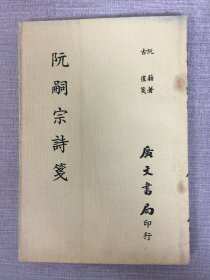 阮籍著
古直箋
阮嗣宗詩箋
廣文書局印行